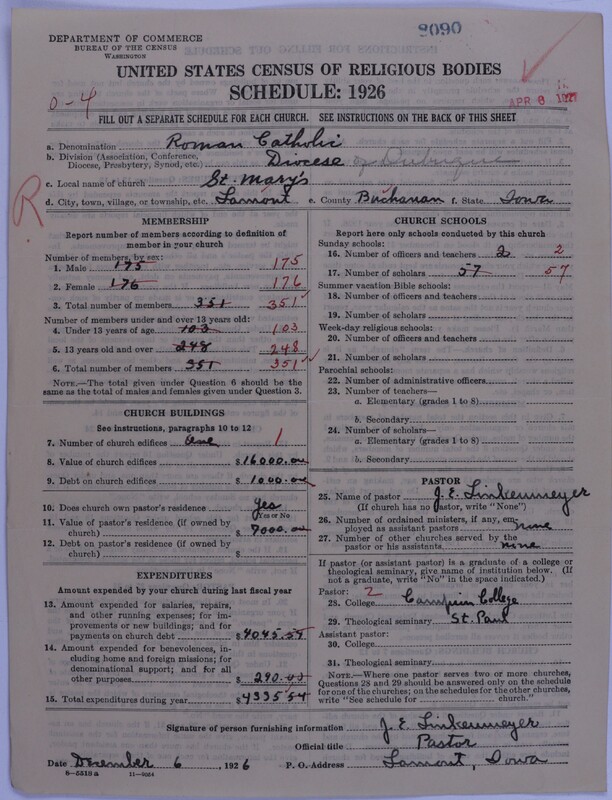 8090
DEPARTMENT OF COMMERCE
BUREAU OF THE CENSUS
WASHINGTON
UNITED STATES CENSUS OF RELIGIOUS BODIES
SCHEDULE: 1926
0-4
APR 8 1927
FILL OUT A SEPARATE SCHEDULE FOR EACH CHURCH. SEE INSTRUCTIONS ON THE BACK OF THIS SHEET
a. Denomination Roman Catholic
b. Division (Association, Conference, Diocese, Presbytery, Synod, etc.) Diocese of Dubuque
c. Local name of church St. Mary's
d. City, town, village, or township, etc. Lamont e. County Buchanan f. State Iowa
R
MEMBERSHIP
Report number of members according to definition of member in your church
Number of members, by sex:
1. Male 175 175
2. Female 176 176
3. Total number of members 351 351
Number of members under and over 13 years old:
4. Under 13 years of age 103 103
5. 13 years old and over 248 248
6. Total number of members 351 351
NOTE.—The total given under Question 6 should be the same as the total of males and females given under Question 3.
CHURCH BUILDINGS
See instructions, paragraphs 10 to 12
7. Number of church edifices one 1
8. Value of church edifices $16000.00
9. Debt on church edifices $1000.00
10. Does church own pastor's residence yes
(Yes or No)
11. Value of pastor's residence (if owned by church) $7000.00
12. Debt on pastor's residence (if owned by church) $
EXPENDITURES
Amount expended by your church during last fiscal year
13. Amount expended for salaries, repairs, and other running expenses; for improvements or new buildings; and for payments on church debt $4045.54
14. Amount expended for benevolences, including home and foreign missions; for denominational support; and for all other purposes $290.00
15. Total expenditures during year $4335.54
CHURCH SCHOOLS
Report here only schools conducted by this church
Sunday schools:
16. Number of officers and teachers 2 2
17. Number of scholars 57 57
Summer vacation Bible schools:
18. Number of officers and teachers
19. Number of scholars
Week-day religious schools:
20. Number of officers and teachers
21. Number of scholars
Parochial schools:
22. Number of administrative officers
23. Number of teachers—
a. Elementary (grades 1 to 8)
b. Secondary
24. Number of scholars—
a. Elementary (grades 1 to 8)
b. Secondary
PASTOR
25. Name of pastor J. E. Linkenmeyer
(If church has no pastor, write "None")
26. Number of ordained ministers, if any, employed as assistant pastors none
27. Number of other churches served by the pastor or his assistants none
If pastor (or assistant pastor) is a graduate of a college or theological seminary, give name of institution below. (If not a graduate, write "No" in the space indicated.)
Pastor: 2
28. College Campion College
29. Theological seminary St. Paul
Assistant pastor:
30. College
31. Theological seminary
NOTE.—Where one pastor serves two or more churches, Questions 28 and 29 should be answered only on the schedule for one of the churches; on the schedules for the other churches, write "See schedule for church."
Signature of person furnishing information J. E. Linkenmeyer
Official title Pastor
Date December 6, 1926 P. O. Address Lamont, Iowa
8-5319a 11-9054